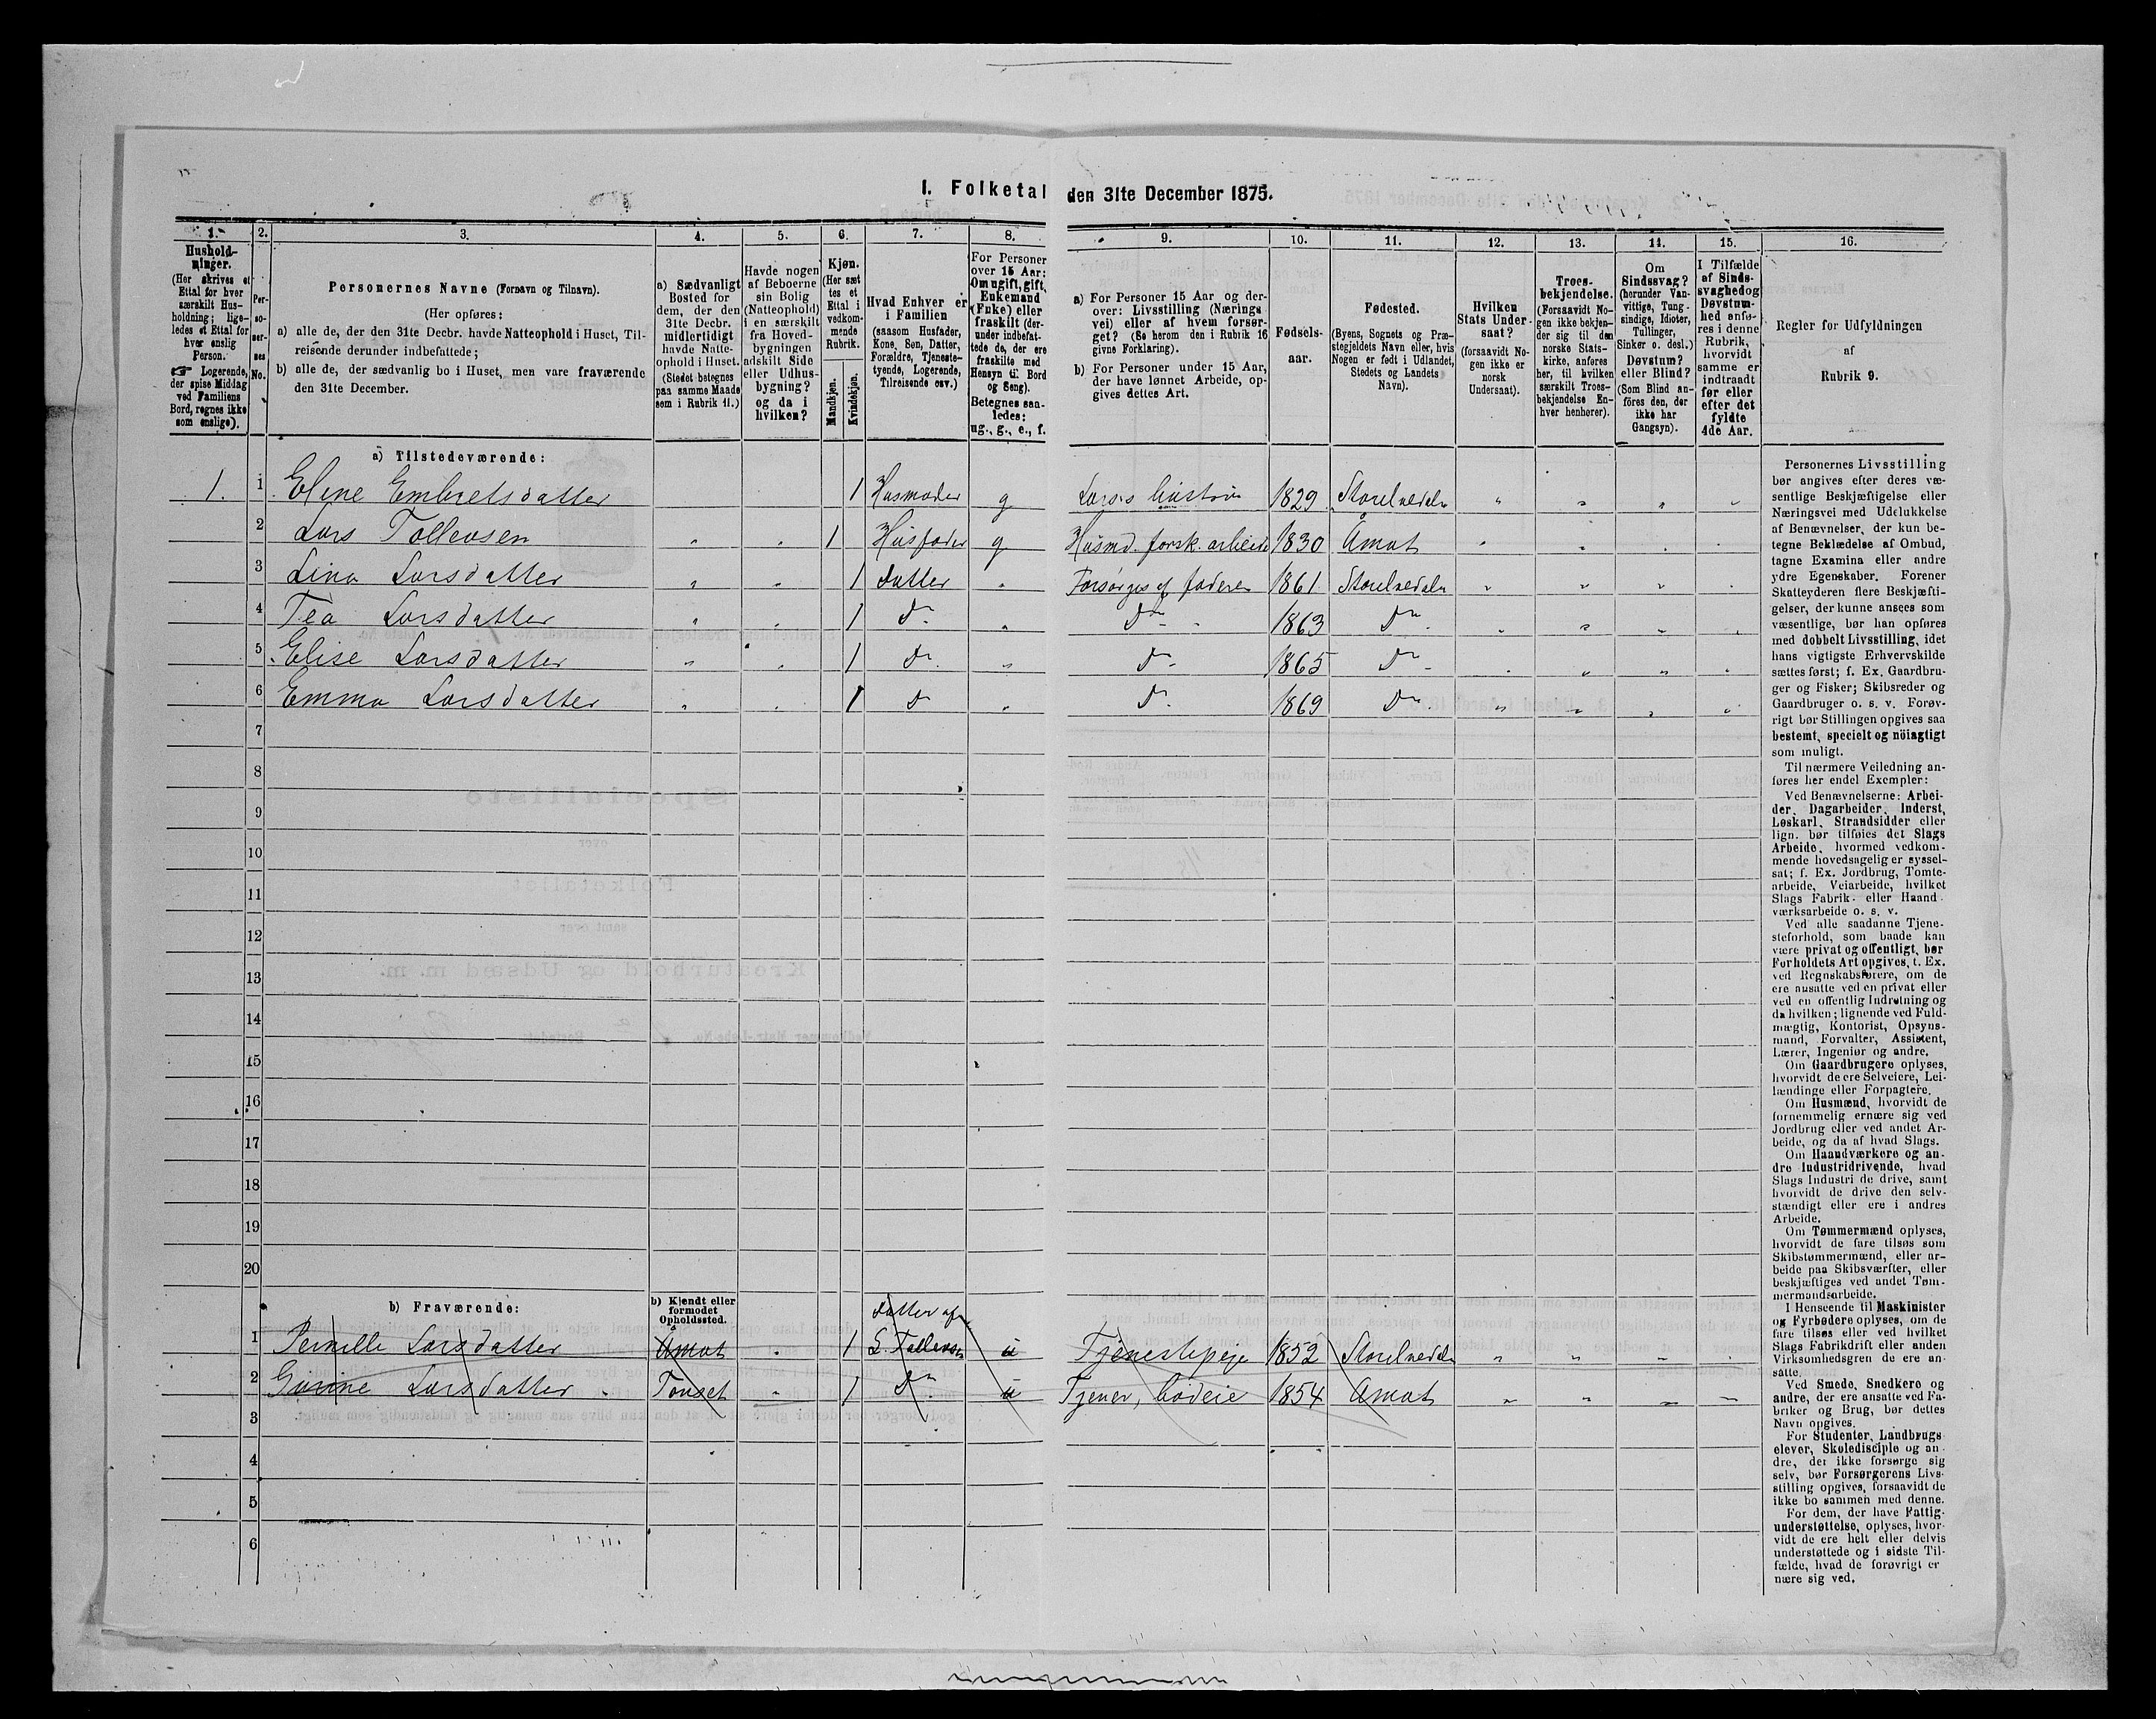 I. Folketal den 31te December 1875.
1. 2. 3. 4. 5. 6. 7. 8. 9. 10. 11. 12. 13. 14. 15. 16.
Hushold-
ninger.
(Her skrives et
Ettal for hver
særskilt Hus-
holdning; lige-
ledes et Ettal for
hver enslig
Person.
☞ Logerende,
der spise Middag
ved Familiens
Bord, regnes ikke
som enslige).
Per-
so-
ner-
nes
No.
Personernes Navne (Fornavn og Tilnavn).
(Her opføres:
a) alle de, der den 31te Decbr. havde Natteophold i Huset, Til-
reisende derunder indbefattede;
b) alle de, der sædvanlig bo i Huset, men vare fraværende
den 31te December.
a) Sædvanligt
Bosted for
dem, der den
31te Decbr.
midlertidigt
havde Natte-
ophold i Huset.
(Stedet betegnes
paa samme Maade
som i Rubrik 11.)
Havde nogen
af Beboerne
sin Bolig
(Natteophold)
i en særskilt
fra Hoved-
bygningen
adskilt Side
eller Udhus-
bygning?
og da i
hvilken?
Kjøn.
(Her sæt
tes et
Ettal i
vedkom-
mende
Rubrik.
Mandkjøn.
Kvindekjøn.
Hvad Enhver er
i Familien
(saasom Husfader,
Kone, Søn, Datter,
Forældre, Tjeneste-
tyende, Logerende,
Tilreisende osv.)
For Personer
over 15 Aar:
Om ugift, gift,
Enkemand
(Enke) eller
fraskilt (der-
under indbefat-
tede de, der ere
fraskilte med
Hensyn til Bord
og Seng).
Betegnes saa-
ledes:
ug., g., e., f.
a) For Personer 15 Aar og der-
over: Livsstilling (Nærings
vei) eller af hvem forsør-
get? (Se herom den i Rubrik 16
givne Forklaring).
b) For Personer under 15 Aar,
der have lønnet Arbeide, op-
gives dettes Art.
Fødsels-
aar.
Fødested.
(Byens, Sognets og Præ-
stegjeldets Navn eller, hvis
Nogen er født i Udlandet,
Stedets og Landets
Navn).
Hvilken
Stats Under-
saat?
(forsaavidt No-
gen ikke er
norsk
Undersaat).
Troes-
bekjendelse.
(Forsaavidt No-
gen ikke bekjen-
der sig til den
norske Stats-
kirke, anføres
her, til hvilken
særskilt Troes-
bekjendelse En-
hver henhører).
Om
Sindssvag?
(herunder Van-
vittige, Tung-
sindige, Idioter,
Tullinger,
Sinker o. desl.)
Døvstum?
eller Blind?
(Som Blind an-
föres den, der
ikke har
Gangsyn).
I Tilfælde
af Sinds-
svaghed og
Døvstum-
hed anfø-
res i denne
Rubrik,
hvorvidt
samme er
indtraadt
før eller
efter det
fyldte
4de Aar.
Regler for Udfyldningen
af
Rubrik 9.
a) Tilstedeværende:
1. 1 Eline Embretsdatter 1 Husmoder g Larses hustru 1829 Storelvedalen " " " "
2 Lars Tollevsen " " 1 Husfader g Husmd. forsk. arbeide 1830 Åmot " " " "
3 Lina Larsdatter " " 1 datter " Forsørges af faderen 1861 Storelvedalen " " " "
4 Tea Larsdatter " " 1 do " do " 1863 do " " " "
5 Elise Larsdatter " " 1 do " do 1865 do " " " "
6 Emma Larsdatter " " 1 do " do 1869 do " " " "
7
8
9
10
11
12
13
14
15
16
17
18
19
20
b) Fraværende:
b) Kjendt eller
formodet
Opholdssted.
datter af
1 Pernille Larsdatter Åmot " 1 L. Tollevsen ú Tjenestepige 1852 Storelvedalen " " " "
2 Gurine Larsdatter Tønset " 1 do ú Tjener, budeie 1854 Åmot " " " "
3
4
5
6
Personernes Livsstilling
bør angives efter deres væ-
sentlige Beskjæftigelse eller
Næringsvei med Udelukkelse
af Benævnelser, der kun be-
tegne Beklædelse af Ombud,
tagne Examina eller andre
ydre Egenskaber. Forener
Skatteyderen flere Beskjæfti-
gelser, der kunne ansees som
væsentlige, bør han opføres
med dobbelt Livsstilling, idet
hans vigtigste Erhvervskilde
sættes først; f. Ex. Gaardbru-
ger og Fisker; Skibsreder og
Gaardbruger o. s. v. Forøv-
rigt bør Stillingen opgives saa
bestemt, specielt og nöiagtigt
som muligt.
Til nærmere Veiledning an-
føres her endel Exempler:
Ved Benævnelserne: Arbei-
der, Dagarbeider, Inderst,
Løskarl, Strandsidder eller
lign. bør tilføies det Slags
Arbeide, hvormed vedkom-
mende hovedsagelig er syssel-
sat; f. Ex. Jordbrug, Tomte-
arbeide, Veiarbeide, hvilket
Slags Fabrik- eller Haand-
værksarbeide o. s. v.
Ved alle saadanne Tjene-
steforhold, som baade kan
være privat og offentligt, bør
Forholdets Art opgives, f. Ex.
ved Regnskabsførere, om de
ere ansatte ved en privat eller
ved en offentlig Indretning og
da hvilken; lignende ved Fuld-
mægtig, Kontorist, Opsyns-
mand, Forvalter, Assistent,
Lærer, Ingeniør og andre.
Om Gaardbrugere oplyses,
hvorvidt de ere Selveiere, Lei-
lændinge eller Forpagtere.
Om Husmænd, hvorvidt de
fornemmelig ernære sig ved
Jordbrug eller ved andet Ar-
beide, og da af hvad Slags.
Om Haandværkere og an-
dre Industridrivende, hvad
Slags Industri de drive, samt
hvorvidt de drive den selv-
stændigt eller ere i andres
Arbeide.
Om Tømmermænd oplyses,
hvorvidt de fare tilsøs som
Skibstømmermænd, eller ar-
beide paa Skibsværfter, eller
beskjæftiges ved andet Tøm-
mermandsarbeide.
I Henseende til Maskinister
og Fyrbødere oplyses, om de
fare tilsøs eller ved hvilket
Slags Fabrikdrift eller anden
Virksomhedsgren de ere an-
satte.
Ved Smede, Snedkere og
andre, der ere ansatte ved Fa-
briker og Brug, bør dettes
Navn opgives.
For Studenter, Landbrugs-
elever, Skoledisciple og an-
dre, der ikke forsørge sig
selv, bør Forsørgerens Livs-
stilling opgives, forsaavidt de
ikke bo sammen med denne.
For dem, der have Fattig-
understøttelse, oplyses, hvor-
vidt de ere helt eller delvis
understøttede og i sidste Til-
fælde, hvad de forøvrigt er-
nære sig ved.